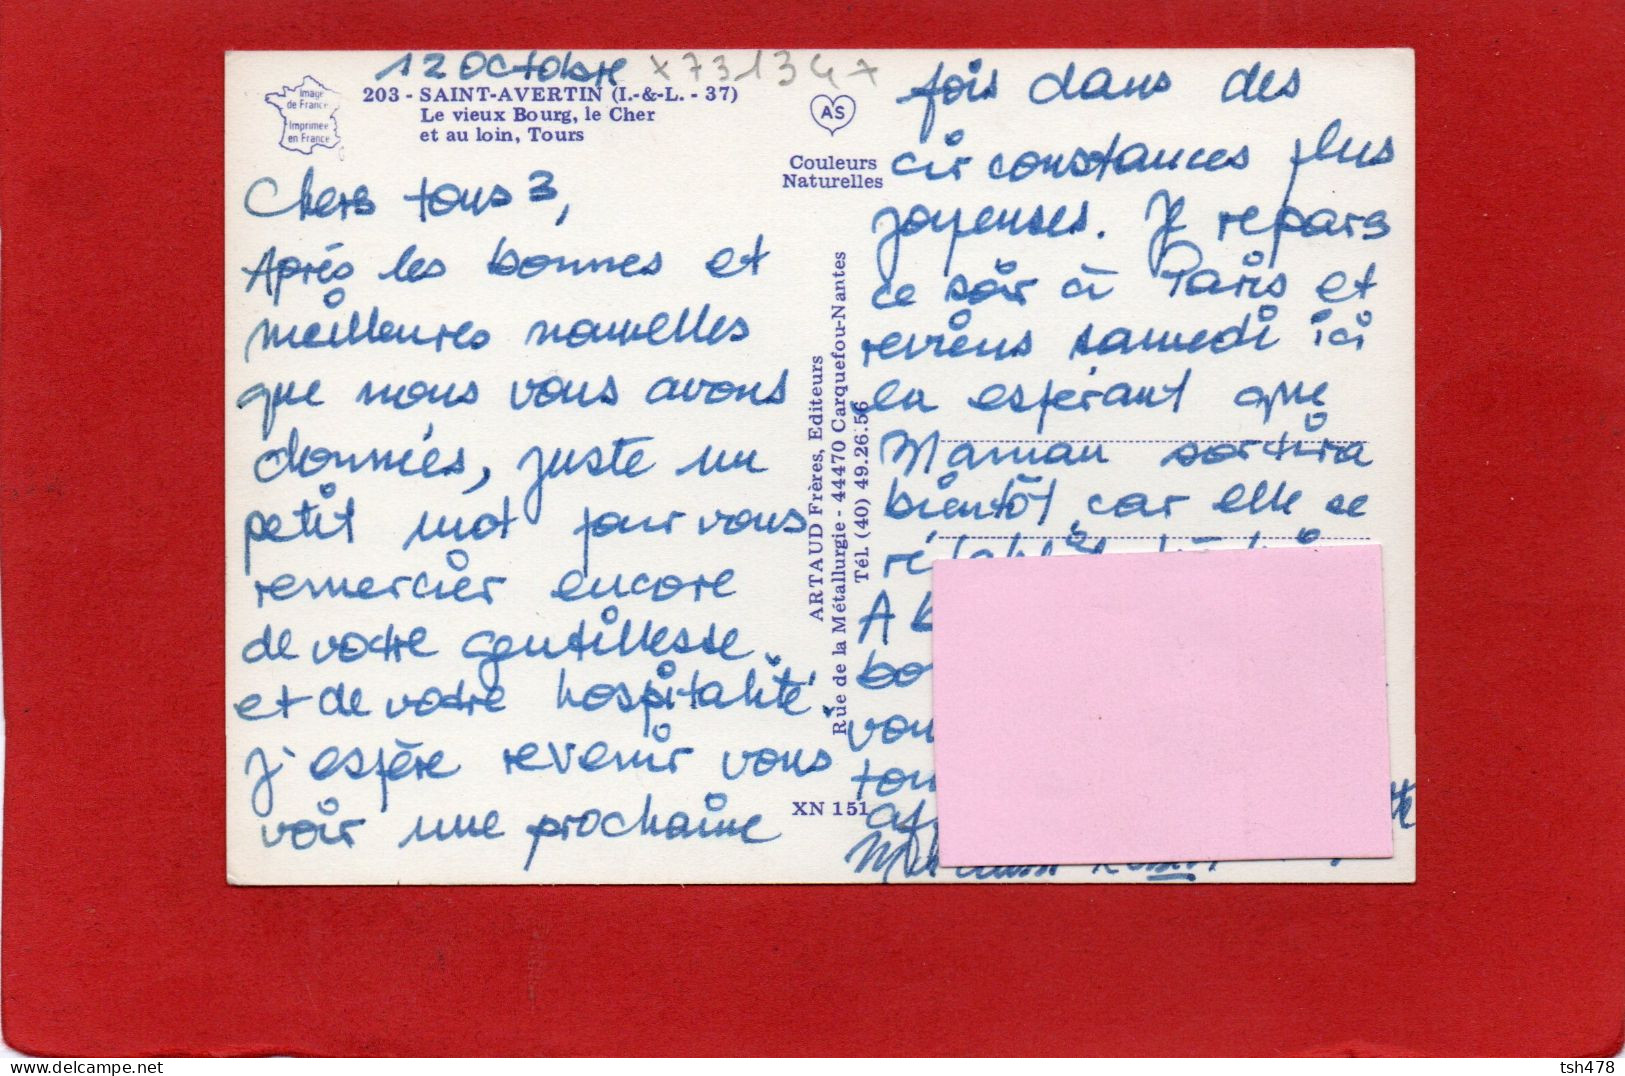 12 Octobre x73134x
Image
de France
Imprimée
en France
203 - SAINT-AVERTIN (I.-&-L. - 37)
Le vieux Bourg, le Cher
et au loin, Tours
AS
Couleurs
Naturelles
Chers tous 3,
Après les bonnes et
meilleures nouvelles
que nous vous avons
données, juste un
petit mot pour vous
remercier encore
de votre gentillesse
et de votre hospitalité.
J'espère revenir vous
voir une prochaine
ARTAUD Frères, Editeurs
Rue de la Métallurgie - 44470 Carquefou-Nantes
Tél. (40) 49.26.56
XN 151
fois dans des
circonstances plus
joyeuses. Je repars
ce soir à Paris et
reviens samedi ici
en espérant que
Maman sortira
bientôt car elle se
A b
bo
vou
tou
af
www.delcampe.net
tsh478